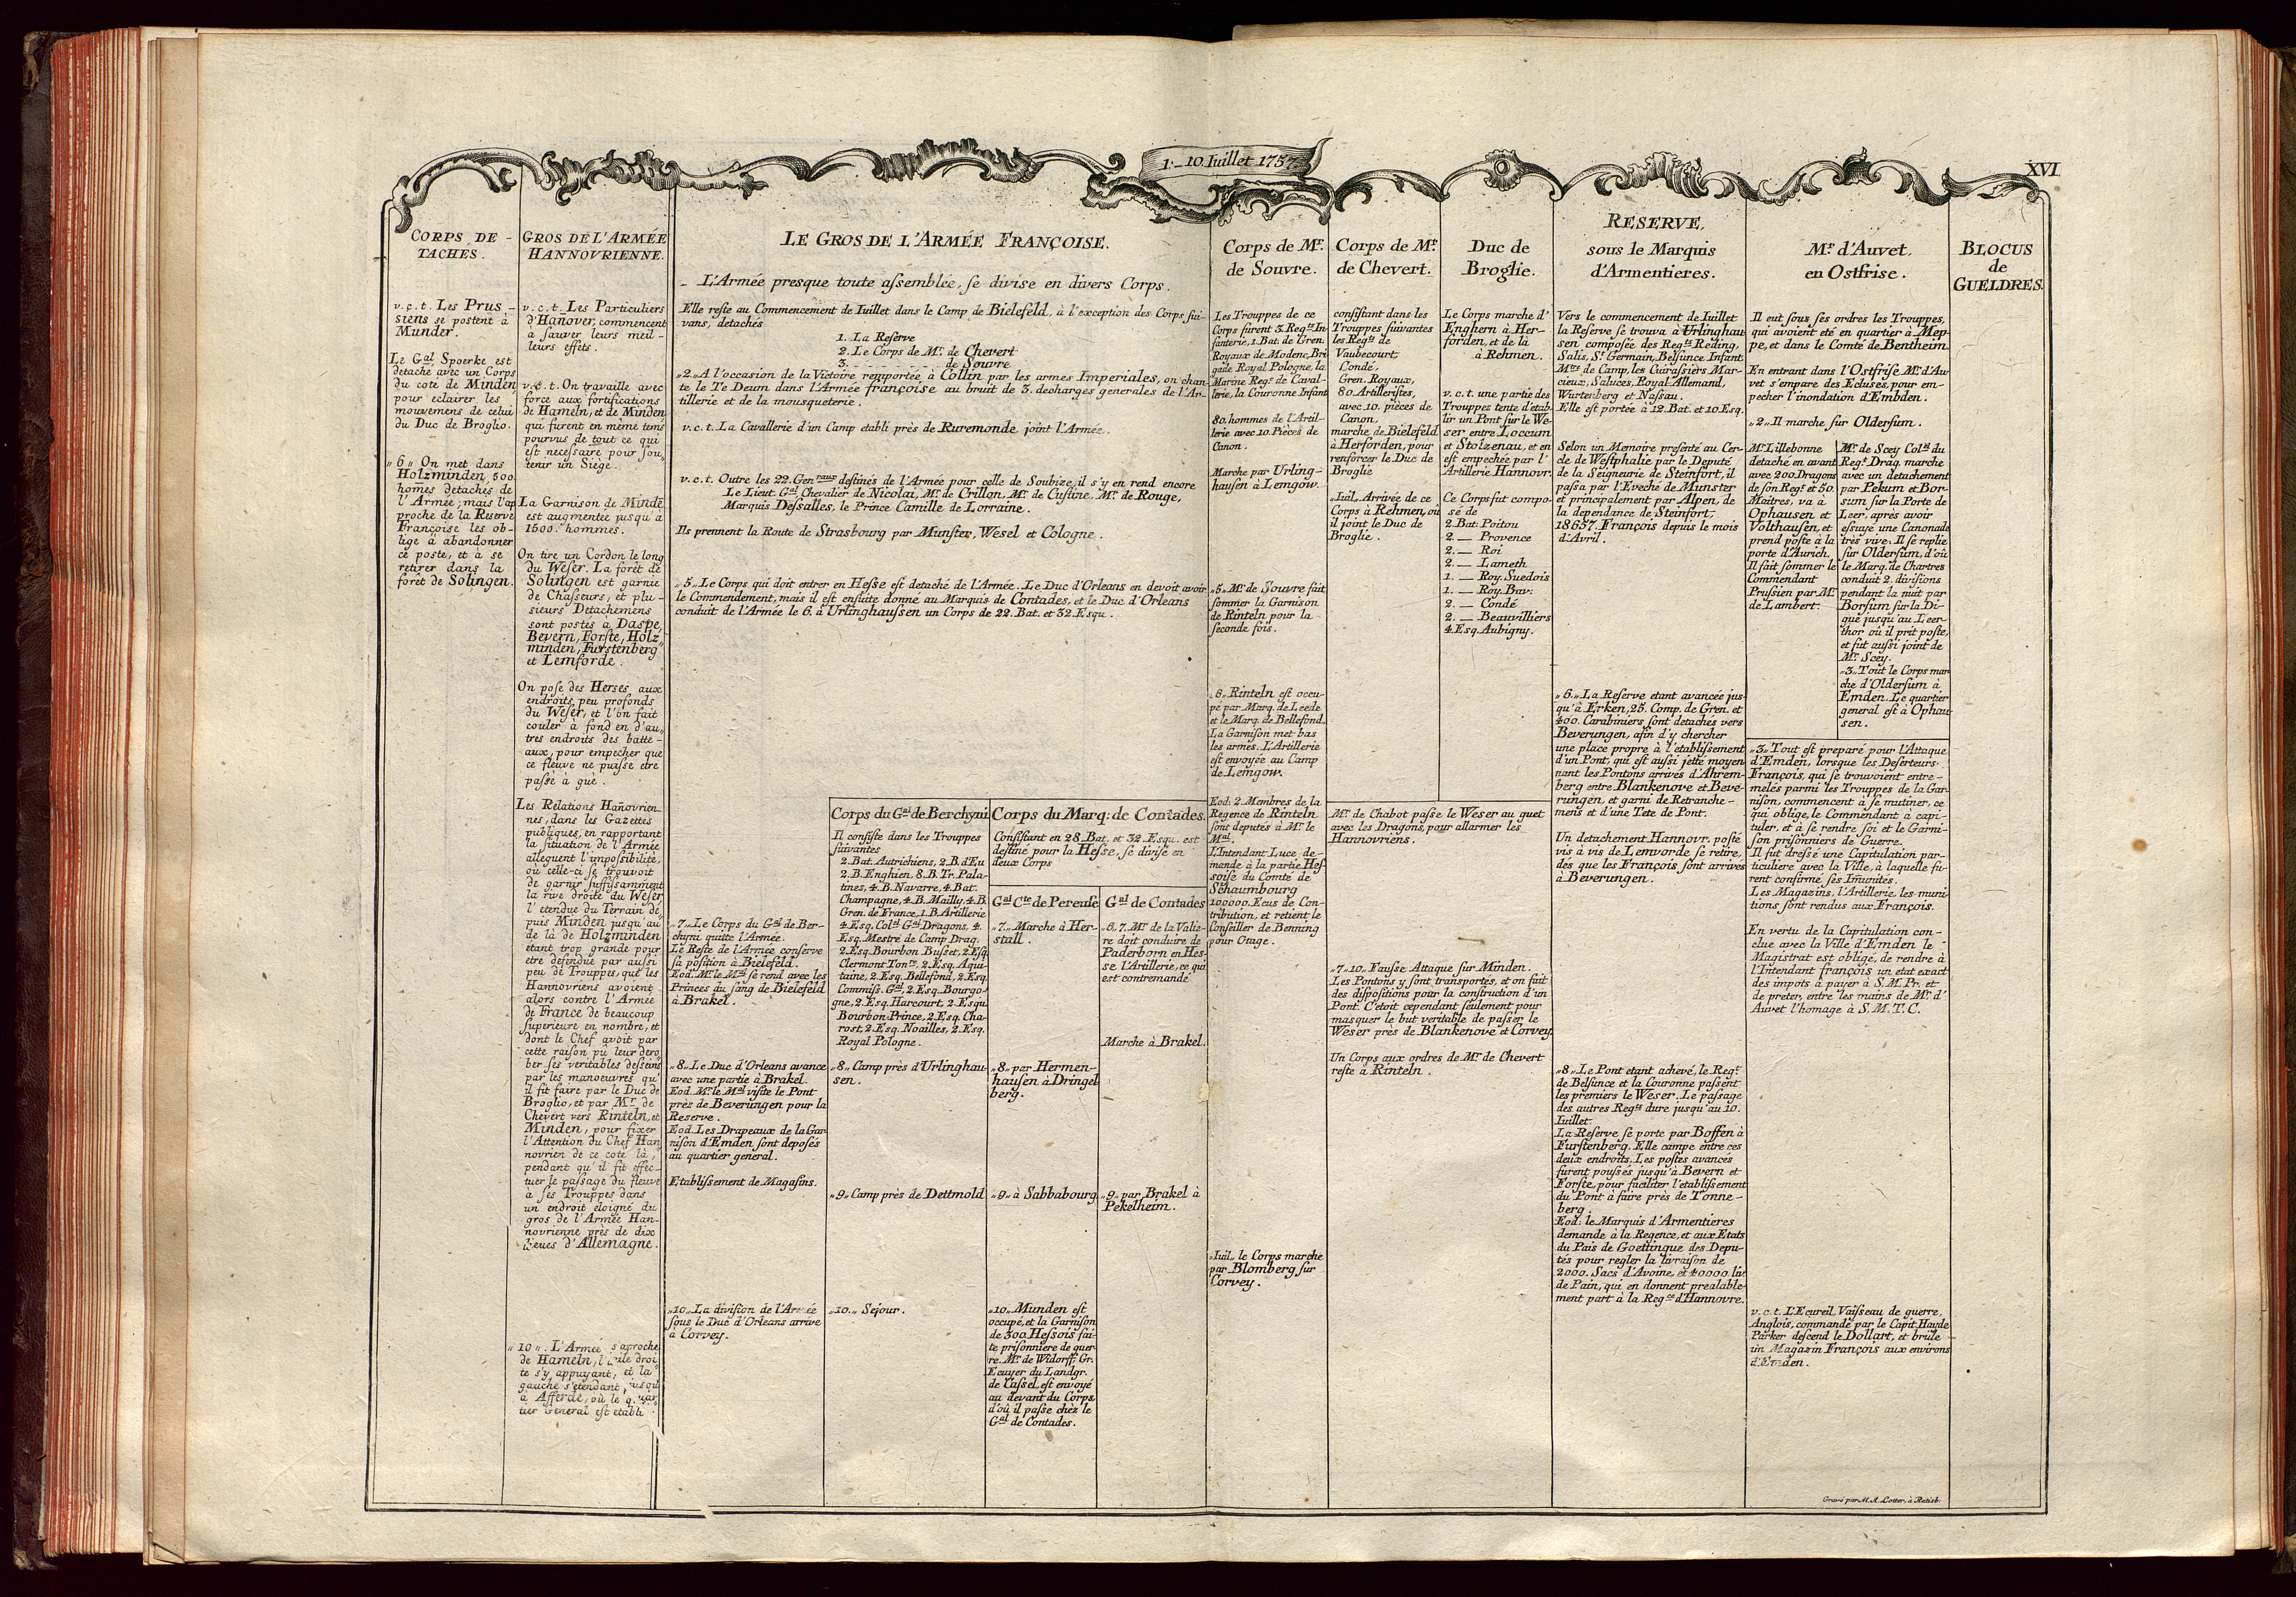 1.-10. Iuillet 1757.
XVI
CORPS DE-
TACHÉS.
v.c.t. Les Prus-
siens se postent à
Munder.
Le Gal Spoerke est
detaché avec un Corps
du coté de Minden,
pour eclairer les
mouvemens de celui
du Duc de Broglio.
„6„ On met dans
Holzminden, 500.
homes detachés de
l'Armée, mais l'ap
proche de la Reserve
Françoise les ob-
lige à abandonner
ce poste, et à se
retirer dans la
forêt de Solingen.
GROS DE L'ARMÉE
HANNOVRIENNE.
v.c.t. Les Particuliers
d'Hañover, commencent
à sauver leurs meil-
leurs effets.
v.c.t. On travaille avec
force aux fortifications
de Hameln, et de Minden
qui furent en même tems
pourvus de tout ce qui
est necessaire pour sou„
tenir un Siège.
La Garnison de Mindē
est augmentée jusqu'à
1500. hommes.
On tire un Cordon le long
du Weser. La forêt de
Solingen est garnie
de Chasseurs, et plu-
sieurs Detachemens
sont postés à Daspe,
Bevern, Forste, Holz„
minden, Furstenberg
et Lemforde.
On pose des Herses aux
endroits peu profonds
du Weser, et l'on fait
couler à fond en d'au„
tres endroits des batte-
aux, pour empecher que
ce fleuve ne puisse etre
passé à gué.
Les Rélations Hañovrien
nes, dans les Gazettes
publiques, en rapportant
la situation de l'Armée
alleguent l'impossibilité,
où celle-ci se trouvoit
de garnir suffissamment
la rive droite du Weser
l'etendue du Terrain de„
puis Minden jusqu'au
de là de Holzminden
etant trop grande pour
etre defendue par aussi
peu de Trouppes, que les
Hannovriens avoient
alors contre l'Armée
de France de beaucoup
superieure en nombre, et
dont le Chef avoit par
cette raison pû leur dero
ber ses veritables desseins
par les manoeuvres qu'
il fit faire par le Duc de
Broglio, et par Mr de
Chevert vers Rinteln, et
Minden, pour fixer
l'Attention du Chef Han
novrien de ce coté là,
pendant qu'il fit effec-
tuer le passage du fleuve
à ses Trouppes dans
un endroit eloigné du
gros de l'Armée Han-
novrienne près de dix
lieues d'Allemagne.
„10„. L'Armée s'aproche
de Hameln, l'aile droi
te s'y appuyant, et la
gauche s'etendant jusqu'
à Afferde, où le quar„
tier General est etabli.
LE GROS DE L'ARMÉE FRANÇOISE.
- L'Armée presque toute assemblée, se divise en divers Corps.
Elle reste au Commencement de Iuillet dans le Camp de Bielefeld, à l'exception des Corps sui-
vans, detachés
1. La Reserve
2. Le Corps de Mr. de Chevert
3. - - - - - - de Souvre
„2„ A l'occasion de la Victoire remportée à Collin par les armes Imperiales, on chan-
te le Te Deum dans l'Armée françoise au bruit de 3. decharges generales de l'Ar-
tillerie et de la mousqueterie.
v.c.t. La Cavallerie d'un Camp etabli près de Ruremonde joint l'Armée.
v.c.t. Outre les 22. Genraux destinés de l'Armée pour celle de Soubize, il s'y en rend encore
Le Lieut. Gal Chevalier de Nicolai, Mr. de Crillon, Mr. de Custine, Mr. de Rouge,
Marquis Dessalles, le Prince Camille de Lorraine.
Ils prennent la Route de Strasbourg par Munster, Wesel et Cologne.
„5„ Le Corps qui doit entrer en Hesse est detaché de l'Armée. Le Duc d'Orleans en devoit avoir
le Commendement, mais il est ensuite donné au Marquis de Contades, et le Duc d'Orleans
conduit de l'Armée le 6. à Urlinghaussen un Corps de 22. Bat. et 32. Esqu.
„7„ Le Corps du Gal de Ber-
chyni quitte l'Armée.
Le Reste de l'Armée conserve
sa position à Bielefeld.
Eod. Mr. le Mal se rend avec les
Princes du sang de Bielefeld
à Brakel.
„8„ Le Duc d'Orleans avance
avec une partie à Brakel.
Eod. Mr. le Mal visite le Pont
près de Beverungen pour la
Reserve.
Eod. Les Drapeaux de la Gar
nison d'Emden sont deposés
au quartier general.
Etablissement de Magasins.
„10„ La division de l'Armée
sous le Duc d'Orleans arrive
à Corvey.
Corps du Gal de Berchyni
Il consiste dans les Trouppes
suivantes
2. Bat. Autrichiens, 2. B. d'Eu
2. B. Enghien, 8. B. Tr. Pala-
tines, 4. B. Navarre, 4. Bat.
Champagne, 4. B. Mailly, 4. B.
Gren. de France, 1. B. Artillerie
4. Esq. Coll Gal Dragons, 4.
Esq. Mestre de Camp Drag.
2. Esq. Bourbon Busset, 2. Esq.
Clermont Tonre, 2. Esq. Aqui-
taine, 2. Esq. Bellefond, 2. Esq.
Commiss. Gal, 2. Esq. Bourgo-
gne, 2. Esq. Harcourt, 2. Esqu.
Bourbon Prince, 2. Esq. Cha-
rost, 2. Esq. Noailles, 2. Esq.
Royal Pologne.
„8„ Camp près d'Urlinghau
sen.
„9„ Camp près de Dettmold
„10„ Sejour.
Corps du Marq: de Contades.
Consistant en 28. Bat. et 32. Esqu. est
destiné pour la Hesse, se divise en
deux Corps
Gal Cte de Pereuse
„7„ Marche à Her-
stall.
„8„ par Hermen-
hausen à Dringel
berg.
„9„ à Sabbabourg
„10„ Munden est
occupé, et la Garnison
de 300. Hessois fai-
te prisonniere de guer-
re. Mr. de Widorff, Gr.
Ecuyer du Landgr.
de Cassel, est envoyé
au devant du Corps,
d'où il passe chèz le
Gal de Contades.
Gal de Contades
„6, 7. Mr. de la Valie-
re doit conduire de
Paderborn en Hes-
se l'Artillerie, ce qui
est contremandé
Marche à Brakel.
„9„ par Brakel à
Pekelheim.
Corps de Mr.
de Souvre.
Les Trouppes de ce
Corps furent 3. Regts In-
fanterie, 1. Bat. de Gren.
Royaux de Modene, Bri
gade Royal Pologne, la
Marine Regt. de Caval-
lerie, la Couronne Infant.
80. hommes de l'Artil-
lerie avec 10. Pièces de
Canon.
Marche par Urling-
hausen à Lemgow.
„5„ Mr. de Souvre fait
sommer la Garnison
de Rinteln pour la
seconde fois.
„6„ Rinteln est occu-
pé par Marq. de Leede
et le Marq. de Bellefond.
La Garnison met bas
les armes. L'Artillerie
est envoyée au Camp
de Lemgow.
Eod. 2. Membres de la
Regence de Rinteln
sont deputés à Mr. le
Mal.
L'Intendant Luce de-
mande à la partie Hes
soise du Comté de
Schaumbourg
100000. Ecus de Con-
tribution, et retient le
Conseiller de Benning
pour Otage.
„Iuil„ le Corps marche
par Blomberg sur
Corvey.
Corps de Mr.
de Chevert.
consistant dans les
Trouppes suivantes
les Regts de
Vaubecourt,
Condé,
Gren. Royaux,
80. Artilleristes,
avec 10. pièces de
Canon,
marche de Bielefeld
à Herforden, pour
renforcer le Duc de
Broglie
„Iuil„ Arrivée de ce
Corps à Rehmen, où
il joint le Duc de
Broglie.
Duc de
Broglie.
Le Corps marche d'
Enghern à Her-
forden, et de là
à Rehmen.
v.c.t. une partie des
Trouppes tente d'etab-
lir un Pont sur le We-
ser entre Loccum
et Stolzenau, et en
est empechée par l'
Artillerie Hannovr.
Ce Corps fut compo-
sé de
2. Bat. Poitou
2. — Provence
2. — Roi
2. — Lameth
1. — Roy. Suedois
1. — Roy. Bav.
2. — Condé
2. — Beauvilliers
4. Esq. Aubigny.
Mr. de Chabot passe le Weser au guet
avec les Dragons, pour allarmer les
Hannovriens.
„7„10„ Fausse Attaque sur Minden.
Les Pontons y sont transportés, et on fait
des dispositions pour la construction d'un
Pont. C'étoit cependant seulement pour
masquer le but veritable de passer le
Weser près de Blankenove et Corvey.
Un Corps aux ordres de Mr. de Chevert
reste à Rinteln.
RESERVE,
sous le Marquis
d'Armentieres.
Vers le commencement de Iuillet
la Reserve se trouva à Urlinghau
sen composée des Regts Reding,
Salis, St. Germain, Belsunce Infant.
Mtres de Camp, les Cuirassiers Mar-
cieux, Saluces, Royal Allemand,
Wurtenberg et Nassau.
Elle est portée à 12. Bat. et 10. Esq.
Selon un Memoire presenté au Cer-
cle de Westphalie par le Deputé
de la Seigneurie de Steinfort, il
passa par l'Eveché de Munster
et principalement par Alpen, de
la dependance de Steinfort,
18657. François depuis le mois
d'Avril.
„6„ La Reserve etant avancée jus-
qu'à Erken, 25. Comp. de Gren. et
400. Carabiniers sont detachés vers
Beverungen, afin d'y chercher
une place propre à l'etablissement
d'un Pont, qui est aussi jetté moyen
nant les Pontons arrivés d'Ahrem-
berg entre Blankenove et Beve-
rungen, et garni de Retranche-
mens et d'une Tete de Pont.
Un detachement Hannovr. posté
vis à vis de Lemvorde se retire,
dès que les François sont arrivés
à Beverungen.
„8„ Le Pont etant achevé, le Regt.
de Belsunce et la Couronne passent
les premiers le Weser. Le passage
des autres Regts dure jusqu'au 10.
Iuillet.
La Reserve se porte par Boffen à
Furstenberg. Elle campe entre ces
deux endroits. Les postes avancés
furent poussés jusqu'à Bevern et
Forste, pour faciliter l'etablissement
du Pont à faire près de Tonne-
berg.
Eod: le Marquis d'Armentieres
demande à la Regence, et aux Etats
du Païs de Goettingue des Depu-
tés pour regler la livraison de
2000. Sacs d'Avoine, et 40000. liv.
de Pain, qui en donnent prealable-
ment part à la Regce d'Hannovre.
Mr. d'Auvet,
en Ostfrise.
Il eut sous ses ordres les Trouppes,
qui avoient eté en quartier à Mep-
pe, et dans le Comté de Bentheim.
En entrant dans l'Ostfrise Mr. d'Au-
vet s'empare des Ecluses, pour em-
pecher l'inondation d'Embden.
„2„ Il marche sur Oldersum.
Mr. Lillebonne
detaché en avant
avec 200. Dragons
de son Regt. et 50.
Maitres, va à
Ophausen et
Volthausen, et
prend poste à la
porte d'Aurich.
Il fait sommer le
Commendant
Prussien par Mr.
de Lambert.
Mr. de Scey Coll du
Regt. Drag. marche
avec un detachement
par Pekum et Bor-
sum sur la Porte de
Leer, après avoir
essuyé une Canonade
très vive. Il se replie
sur Oldersum, d'où
le Marq. de Chartres
conduit 2. divisions
pendant la nuit par
Borsum sur la Di-
gue jusqu'au Leer-
thor où il prit poste,
et fut aussi joint de
Mr. Scey.
„3„ Tout le Corps mar
che d'Oldersum à
Emden. Le quartier
general est à Ophau
sen.
„3„ Tout est preparé pour l'Attaque
d'Emden, lorsque les Deserteurs
François, qui se trouvoient entre-
melés parmi les Trouppes de la Gar
nison, commencent à se mutiner, ce
qui oblige, le Commendant à capi-
tuler, et à se rendre soi et le Garni-
son prisonniers de Guerre.
Il fut dressé une Capitulation par-
ticuliere avec la Ville, à laquelle fu-
rent confirmé ses Imunités.
Les Magazins, l'Artillerie, les muni-
tions sont rendus aux François.
En vertu de la Capitulation con-
clue avec la Ville d'Emden le
Magistrat est obligé, de rendre à
l'Intendant françois un etat exact
des impots à payer à S. M. Pr. et
de preter, entre les mains de Mr. d'
Auvet l'homage à S. M. T. C.
v.c.t. L'Ecureil, Vaisseau de guerre,
Anglois, commandé par le Capit. Hayde
Parker descend le Dollart, et brûle
un Magazin François aux environs
d'Emden.
BLOCUS
de
GUELDRES.
Gravé par M. A. Lotter, à Ratisb.